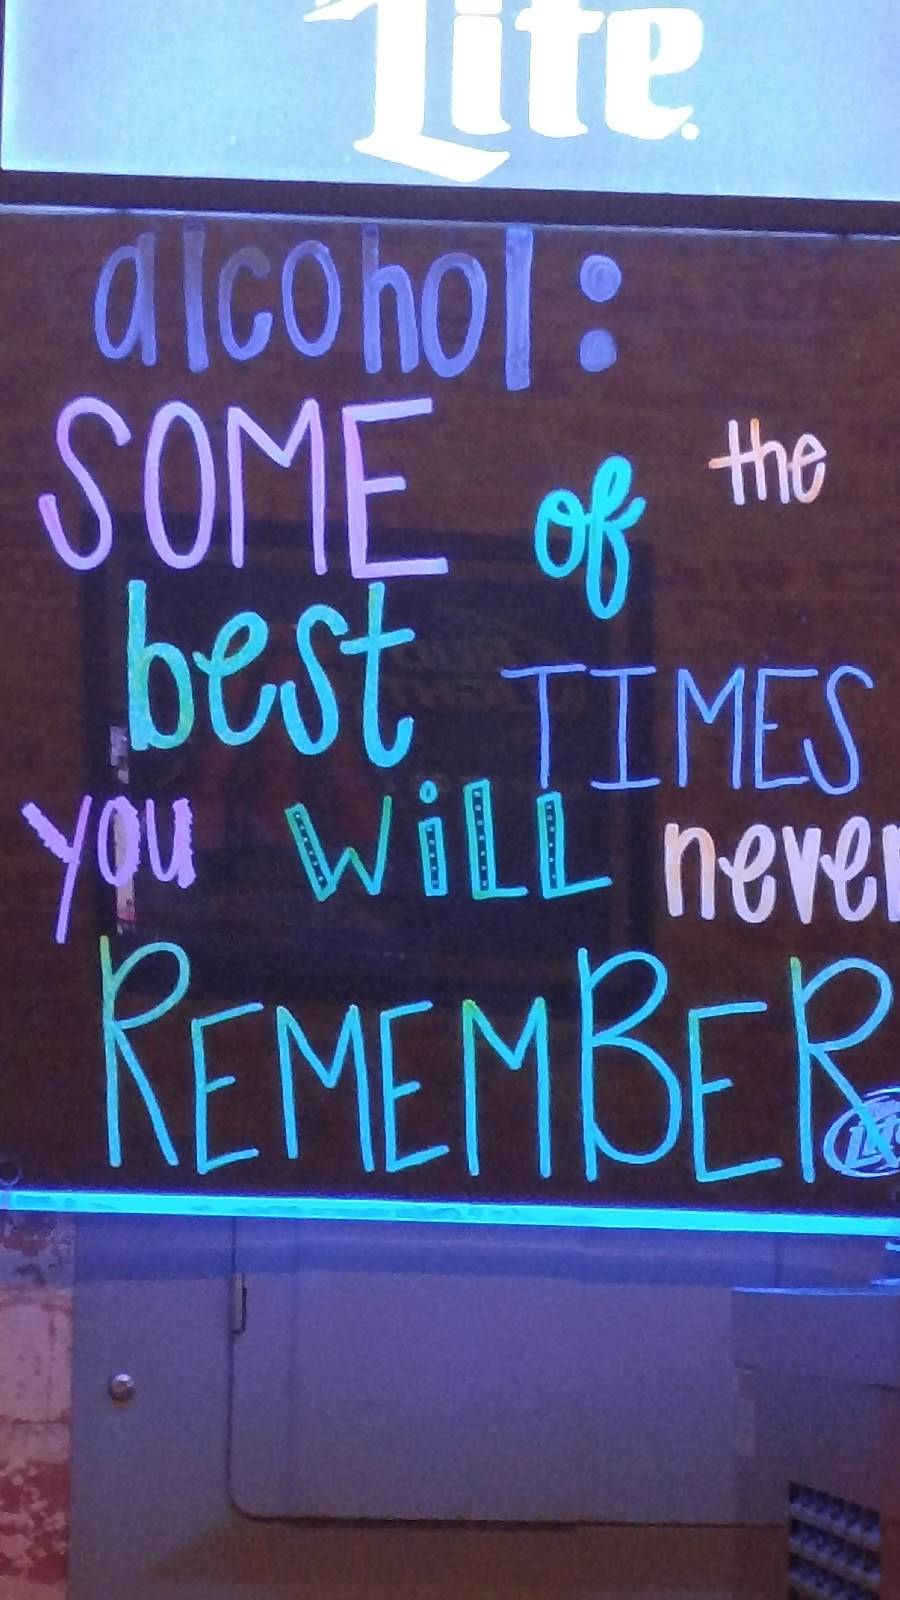 Lite
alcohol:
SOME of the
best TIMES
you will never
REMEMBER